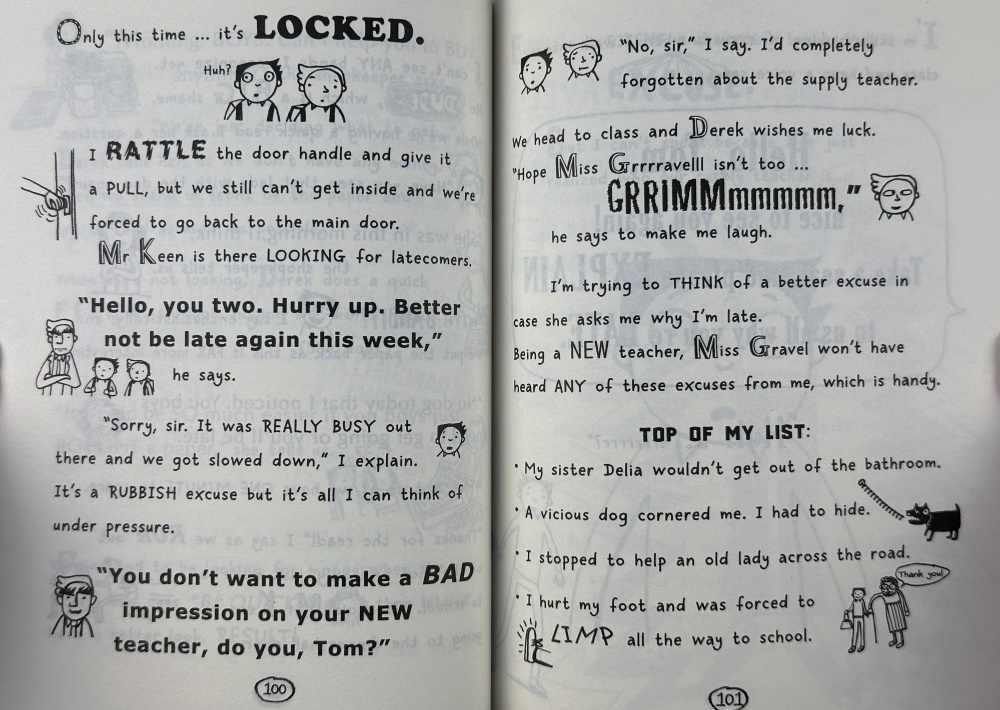 Only this time ... it's LOCKED.
Huh?
I RATTLE the door handle and give it
a PULL, but we still can't get inside and we're
forced to go back to the main door.
Mr Keen is there LOOKING for latecomers.
"Hello, you two. Hurry up. Better
not be late again this week,"
he says.
"Sorry, sir. It was REALLY BUSY out
there and we got slowed down," I explain.
It's a RUBBISH excuse but it's all I can think of
under pressure.
"You don't want to make a BAD
impression on your NEW
teacher, do you, Tom?"
100
"No, sir," I say. I'd completely
forgotten about the supply teacher.
We head to class and Derek wishes me luck.
"Hope Miss Grrrravelll isn't too ...
GRRIMMmmmmm,"
he says to make me laugh.
I'm trying to THINK of a better excuse in
case she asks me why I'm late.
Being a NEW teacher, Miss Gravel won't have
heard ANY of these excuses from me, which is handy.
TOP OF MY LIST:
· My sister Delia wouldn't get out of the bathroom.
· A vicious dog cornered me. I had to hide.
· I stopped to help an old lady across the road.
Thank you!
· I hurt my foot and was forced to
LIMP all the way to school.
101